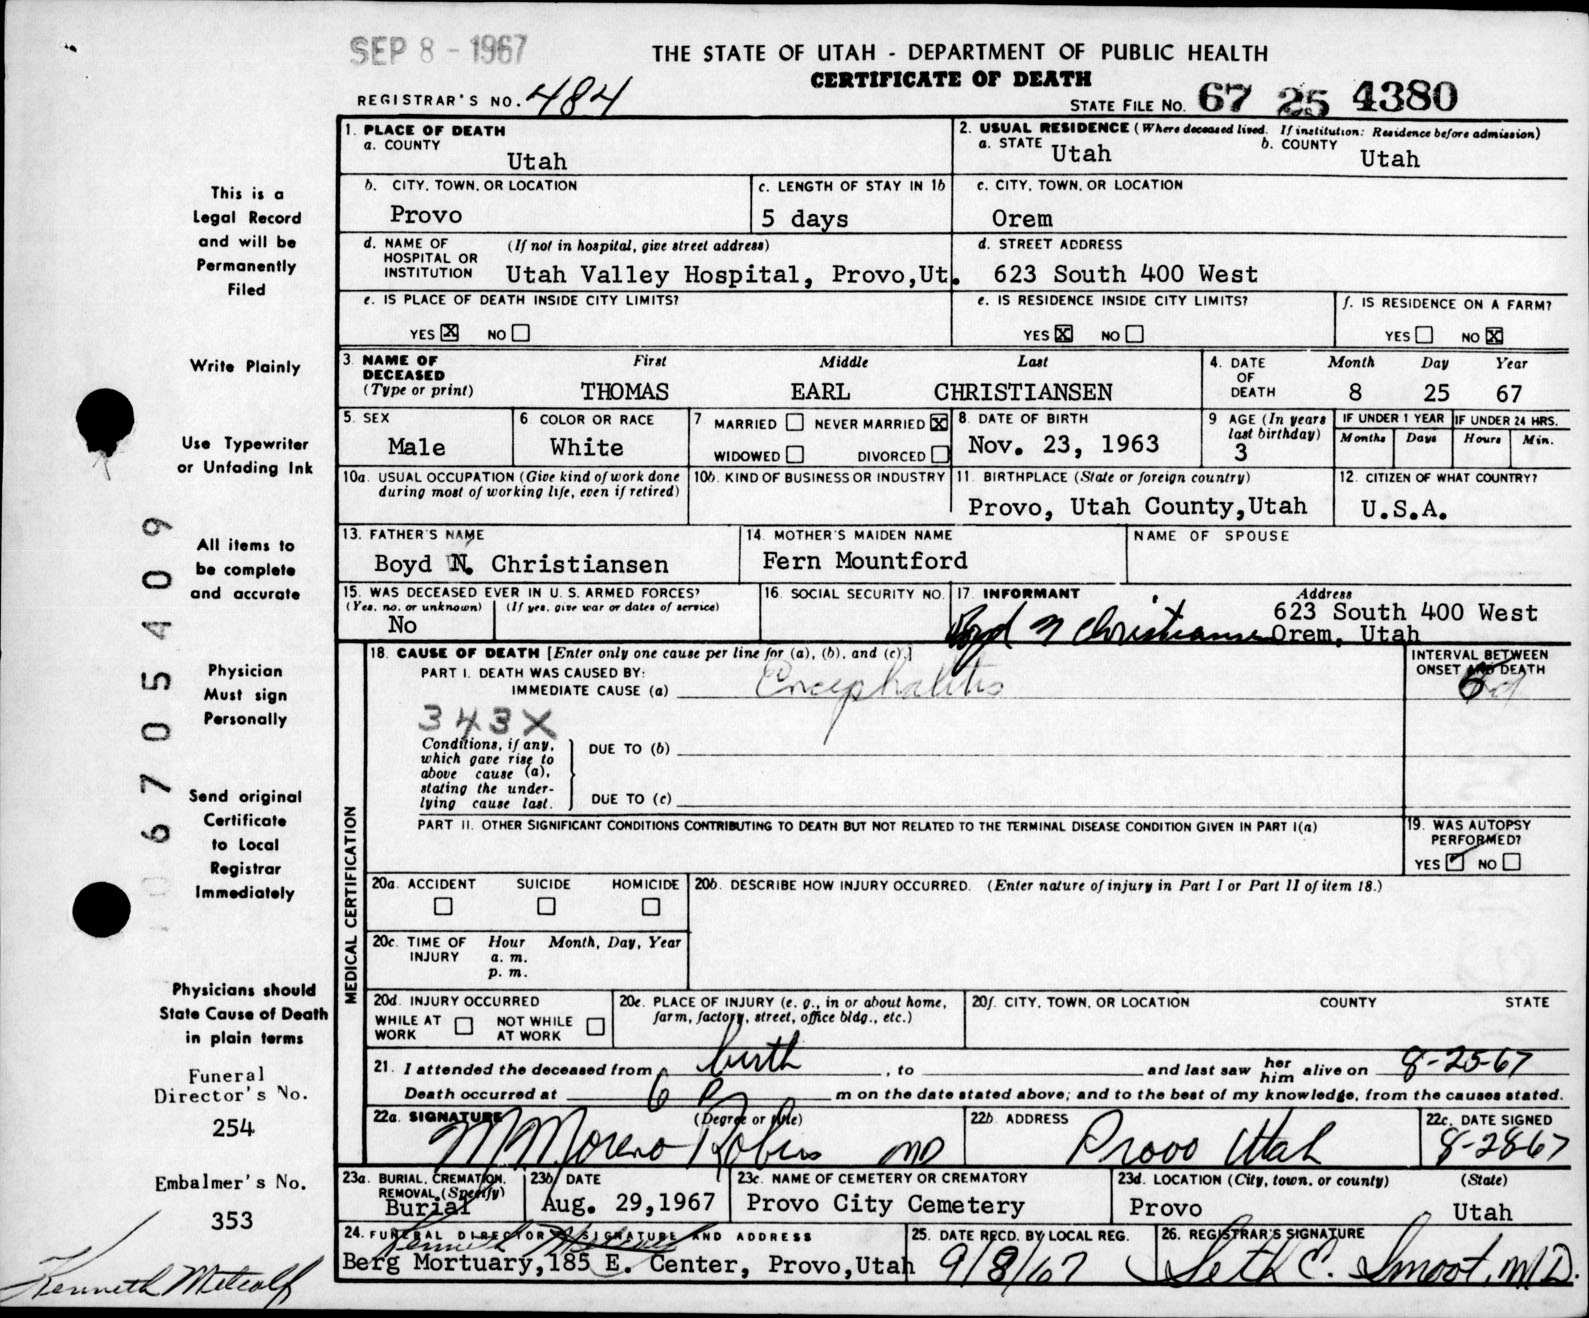 SEP 8 - 1967
THE STATE OF UTAH - DEPARTMENT OF PUBLIC HEALTH
CERTIFICATE OF DEATH
REGISTRAR'S NO. 484
STATE FILE NO. 67 25 4380
This is a
Legal Record
and will be
Permanently
Filed
Write Plainly
Use Typewriter
or Unfading Ink
All items to
be complete
and accurate
Physician
Must sign
Personally
Send original
Certificate
to Local
Registrar
Immediately
Physicians should
State Cause of Death
in plain terms
Funeral
Director's No.
254
Embalmer's No.
353
Kenneth Metcalf
06705409
1. PLACE OF DEATH
a. COUNTY
Utah
2. USUAL RESIDENCE (Where deceased lived. If institution: Residence before admission)
a. STATE Utah b. COUNTY Utah
b. CITY, TOWN, OR LOCATION
Provo
c. LENGTH OF STAY IN 1b
5 days
c. CITY, TOWN, OR LOCATION
Orem
d. NAME OF HOSPITAL OR INSTITUTION (If not in hospital, give street address)
Utah Valley Hospital, Provo,Ut.
d. STREET ADDRESS
623 South 400 West
e. IS PLACE OF DEATH INSIDE CITY LIMITS?
YES X NO
e. IS RESIDENCE INSIDE CITY LIMITS?
YES X NO
f. IS RESIDENCE ON A FARM?
YES NO X
3. NAME OF DECEASED (Type or print)
First Middle Last
THOMAS EARL CHRISTIANSEN
4. DATE OF DEATH
Month Day Year
8 25 67
5. SEX
Male
6 COLOR OR RACE
White
7 MARRIED NEVER MARRIED X
WIDOWED DIVORCED
8. DATE OF BIRTH
Nov. 23, 1963
9 AGE (In years last birthday)
3
IF UNDER 1 YEAR
Months Days
IF UNDER 24 HRS.
Hours Min.
10a. USUAL OCCUPATION (Give kind of work done during most of working life, even if retired)
10b. KIND OF BUSINESS OR INDUSTRY
11. BIRTHPLACE (State or foreign country)
Provo, Utah County,Utah
12. CITIZEN OF WHAT COUNTRY?
U.S.A.
13. FATHER'S NAME
Boyd N. Christiansen
14. MOTHER'S MAIDEN NAME
Fern Mountford
NAME OF SPOUSE
15. WAS DECEASED EVER IN U. S. ARMED FORCES?
(Yes, no, or unknown) (If yes, give war or dates of service)
No
16. SOCIAL SECURITY NO.
17. INFORMANT Address
Boyd N Christiansen
623 South 400 West
Orem, Utah
MEDICAL CERTIFICATION
18. CAUSE OF DEATH [Enter only one cause per line for (a), (b), and (c).]
PART I. DEATH WAS CAUSED BY:
IMMEDIATE CAUSE (a) Encephalitis
INTERVAL BETWEEN ONSET AND DEATH
343X
Conditions, if any, which gave rise to above cause (a), stating the underlying cause last.
DUE TO (b)
DUE TO (c)
PART II. OTHER SIGNIFICANT CONDITIONS CONTRIBUTING TO DEATH BUT NOT RELATED TO THE TERMINAL DISEASE CONDITION GIVEN IN PART I(a)
19. WAS AUTOPSY PERFORMED?
YES ✓ NO
20a. ACCIDENT SUICIDE HOMICIDE
20b. DESCRIBE HOW INJURY OCCURRED. (Enter nature of injury in Part I or Part II of item 18.)
20c. TIME OF INJURY Hour Month, Day, Year
a. m.
p. m.
20d. INJURY OCCURRED
WHILE AT WORK NOT WHILE AT WORK
20e. PLACE OF INJURY (e. g., in or about home, farm, factory, street, office bldg., etc.)
20f. CITY, TOWN, OR LOCATION COUNTY STATE
21. I attended the deceased from birth, to and last saw her him alive on 8-25-67
Death occurred at 6 P m on the date stated above; and to the best of my knowledge, from the causes stated.
22a. SIGNATURE (Degree or title)
M Moreno Robins MD
22b. ADDRESS
Provo Utah
22c. DATE SIGNED
8-28-67
23a. BURIAL, CREMATION, REMOVAL (Specify)
Burial
23b. DATE
Aug. 29,1967
23c. NAME OF CEMETERY OR CREMATORY
Provo City Cemetery
23d. LOCATION (City, town, or county) (State)
Provo Utah
24. FUNERAL DIRECTOR'S SIGNATURE AND ADDRESS
Berg Mortuary,185 E. Center, Provo,Utah
25. DATE RECD. BY LOCAL REG.
9/8/67
26. REGISTRAR'S SIGNATURE
Seth E. Smoot, M.D.